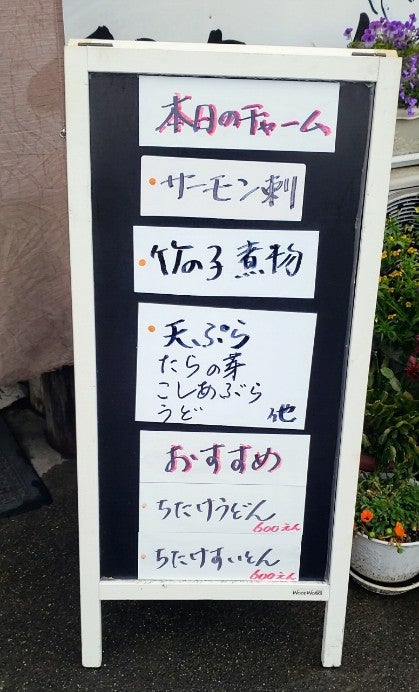 本日のチャーム
・サーモン刺
・竹の子煮物
・天ぷら
たらの芽
こしあぶら
うど 他
おすすめ
・ちたけうどん
600えん
・ちたけすいとん
600えん